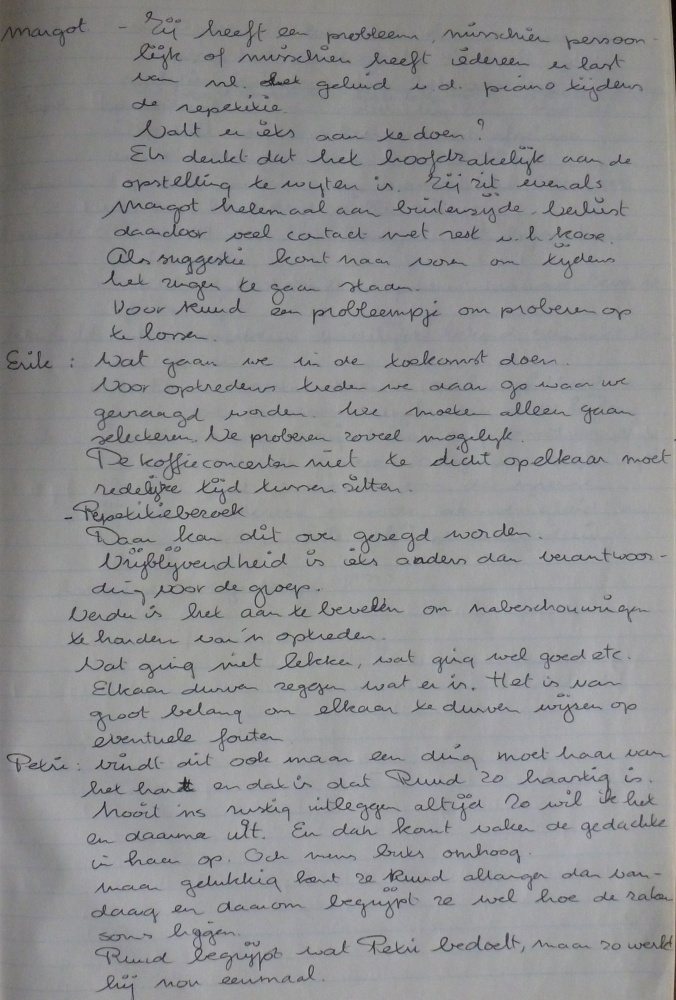 Margot - Zij heeft een probleem, misschien persoon-
lijk of misschien heeft iedereen er last
van nl. het geluid v.d. piano tijdens
de repetitie.
Valt er iets aan te doen?
Els denkt dat het hoofdzakelijk aan de
opstelling te wijten is. Zij zit evenals
Margot helemaal aan buitenzijde. Verliest
daardoor veel contact met rest v.h. koor.
Als suggestie komt naar voren om tijdens
het zingen te gaan staan.
Voor Ruud een probleempje om proberen op
te lossen.
Erik : Wat gaan we in de toekomst doen.
Voor optredens treden we daar op waar we
gevraagd worden. We moeten alleen gaan
selecteren. We proberen zoveel mogelijk.
De koffieconcerten niet te dicht opelkaar moet
redelijke tijd tussen zitten.
- Repetitiebezoek
Daar kan dit over gezegd worden.
Vrijblijvendheid is iets anders dan verantwoor-
ding voor de groep.
Verder is het aan te bevelen om nabeschouwingen
te houden van 'n optreden.
Wat ging niet lekker, wat ging wel goed etc.
Elkaar durven zeggen wat er is. Het is van
groot belang om elkaar te durven wijzen op
eventuele fouten
Petri : vindt dit ook maar een ding moet haar van
het hart en dat is dat Ruud zo haastig is.
Nooit ins rustig uitleggen altijd zo wil ik het
en daarme uit. En dan komt vaker de gedachte
in haar op. Och mens buks omhoog.
maar gelukkig kent ze Ruud allanger dan van-
daag en daarom begrijpt ze wel hoe de zaken
soms liggen.
Ruud begrijpt wat Petri bedoelt, maar zo werkt
hij nou eenmaal.